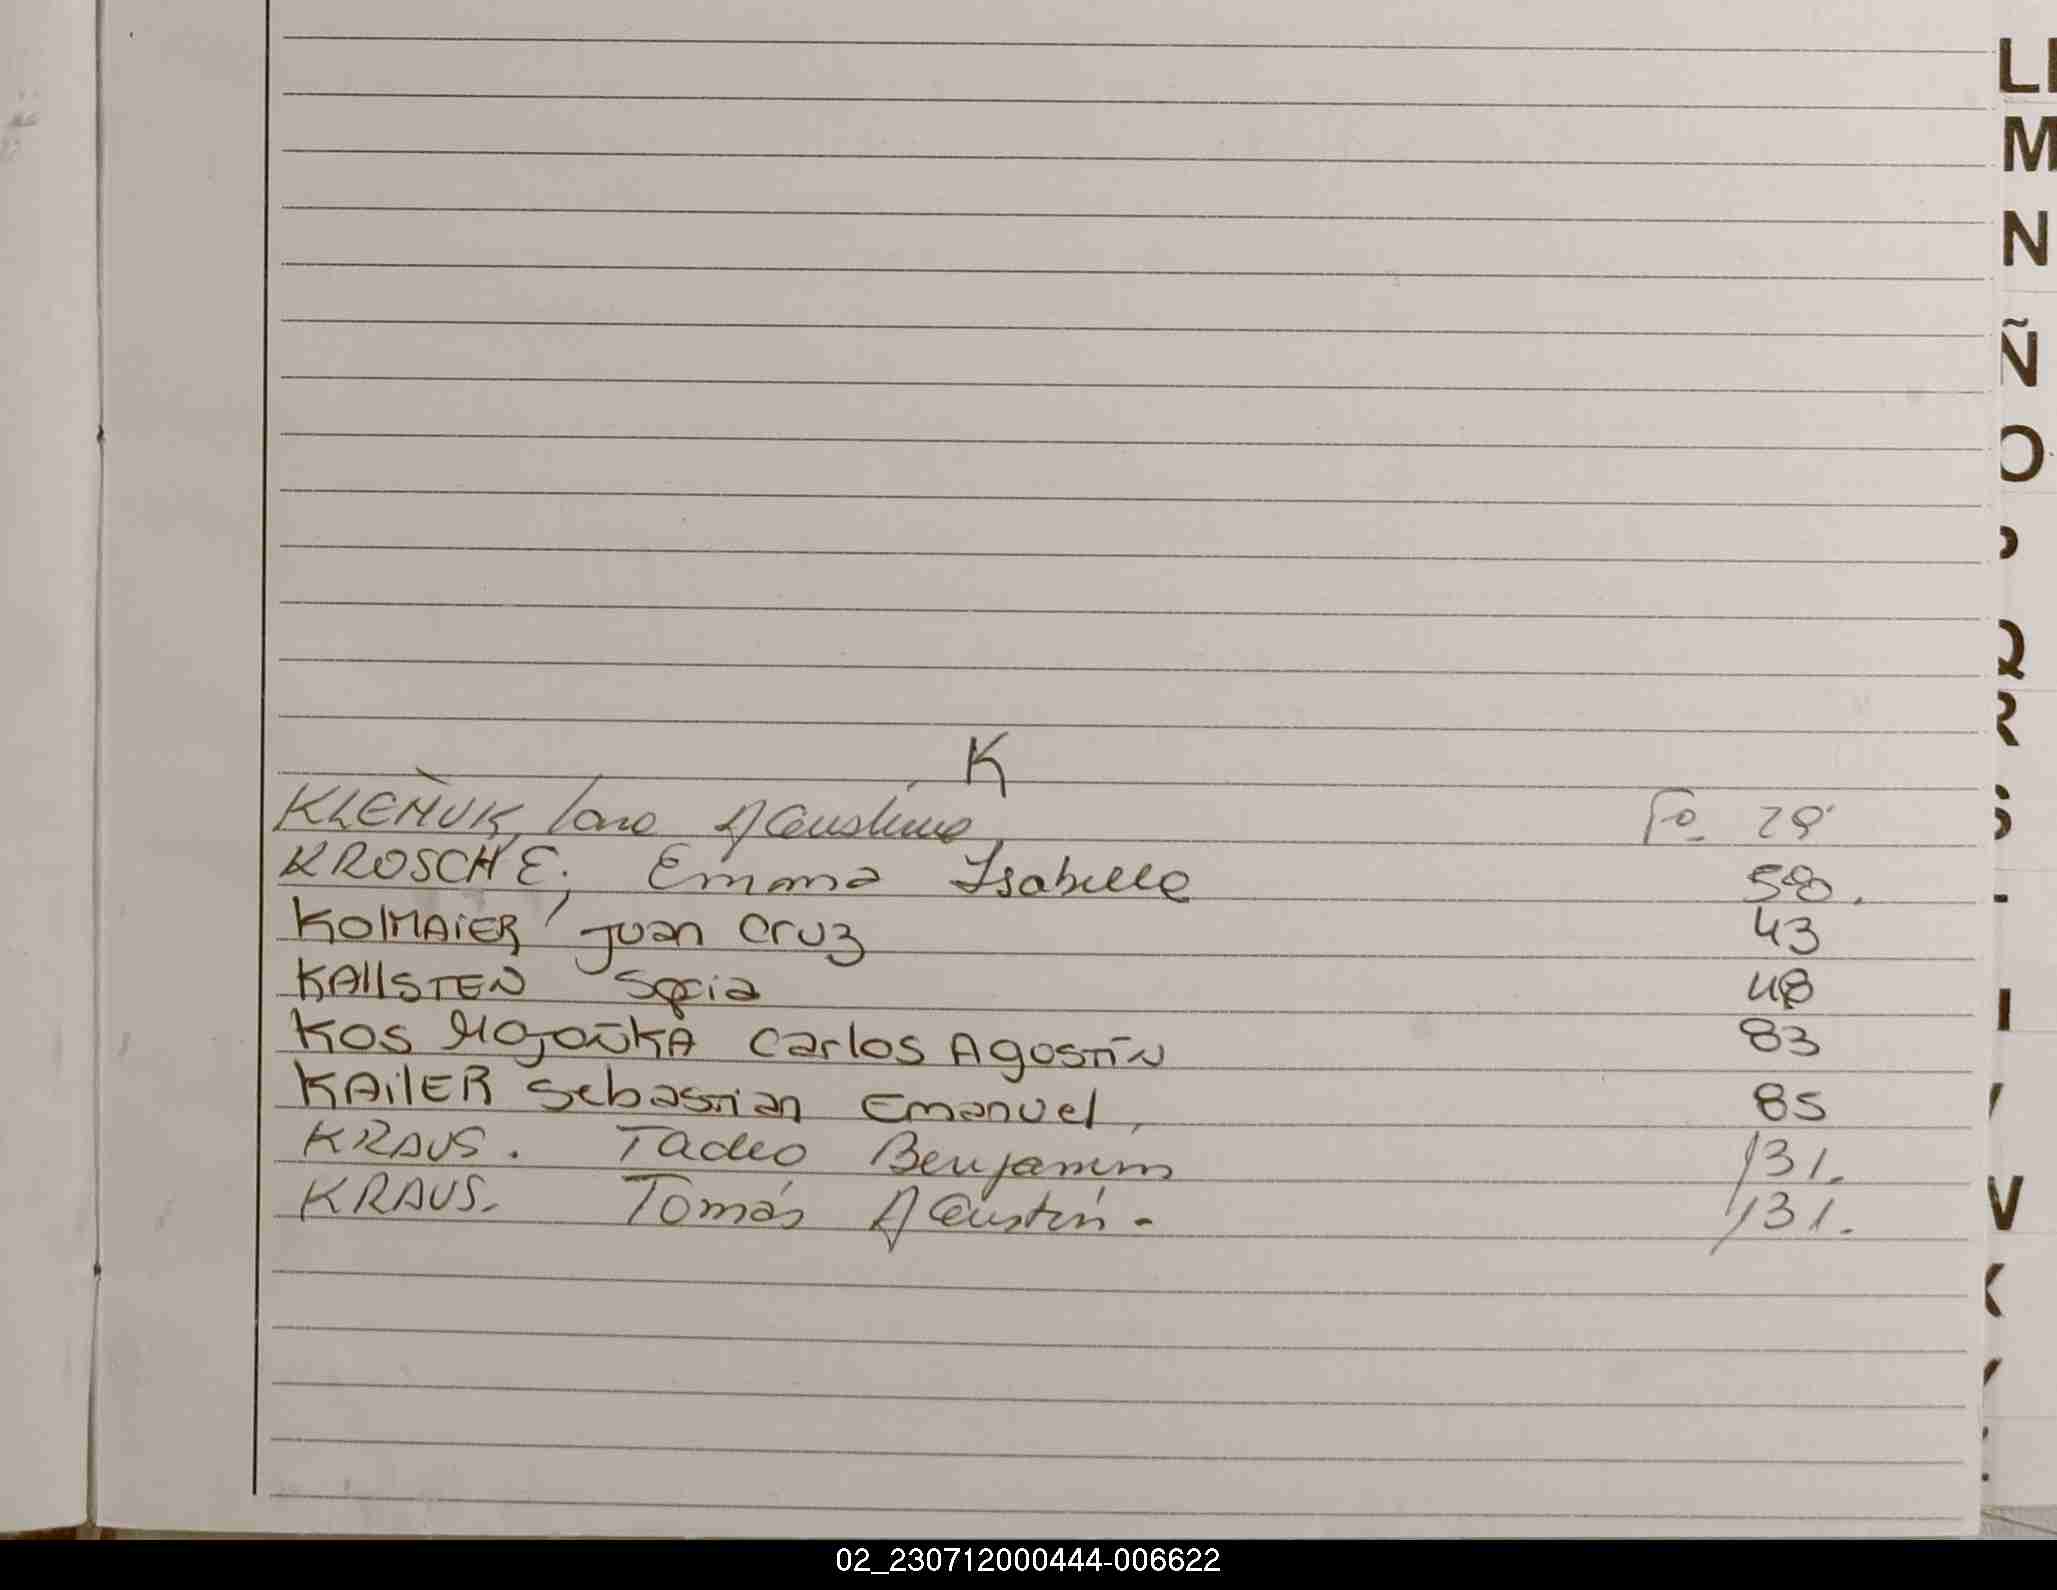 LL
M
N
Ñ
O
P
Q
R
S
K
KLEÑUK, Iara Agustina Fo. 29
KROSCHE, Emma Isabella 50.
KOlMAiER, Juan Cruz 43
KAllSTEN Sofia 48
KOS Carlos AgOSTíN 83
KAilER Sebastian Emanuel, 85
KRAUS. Tadeo Benjamin 131.
KRAUS. Tomás Agustín - 131.
V
W
X
Y
02_230712000444-006622